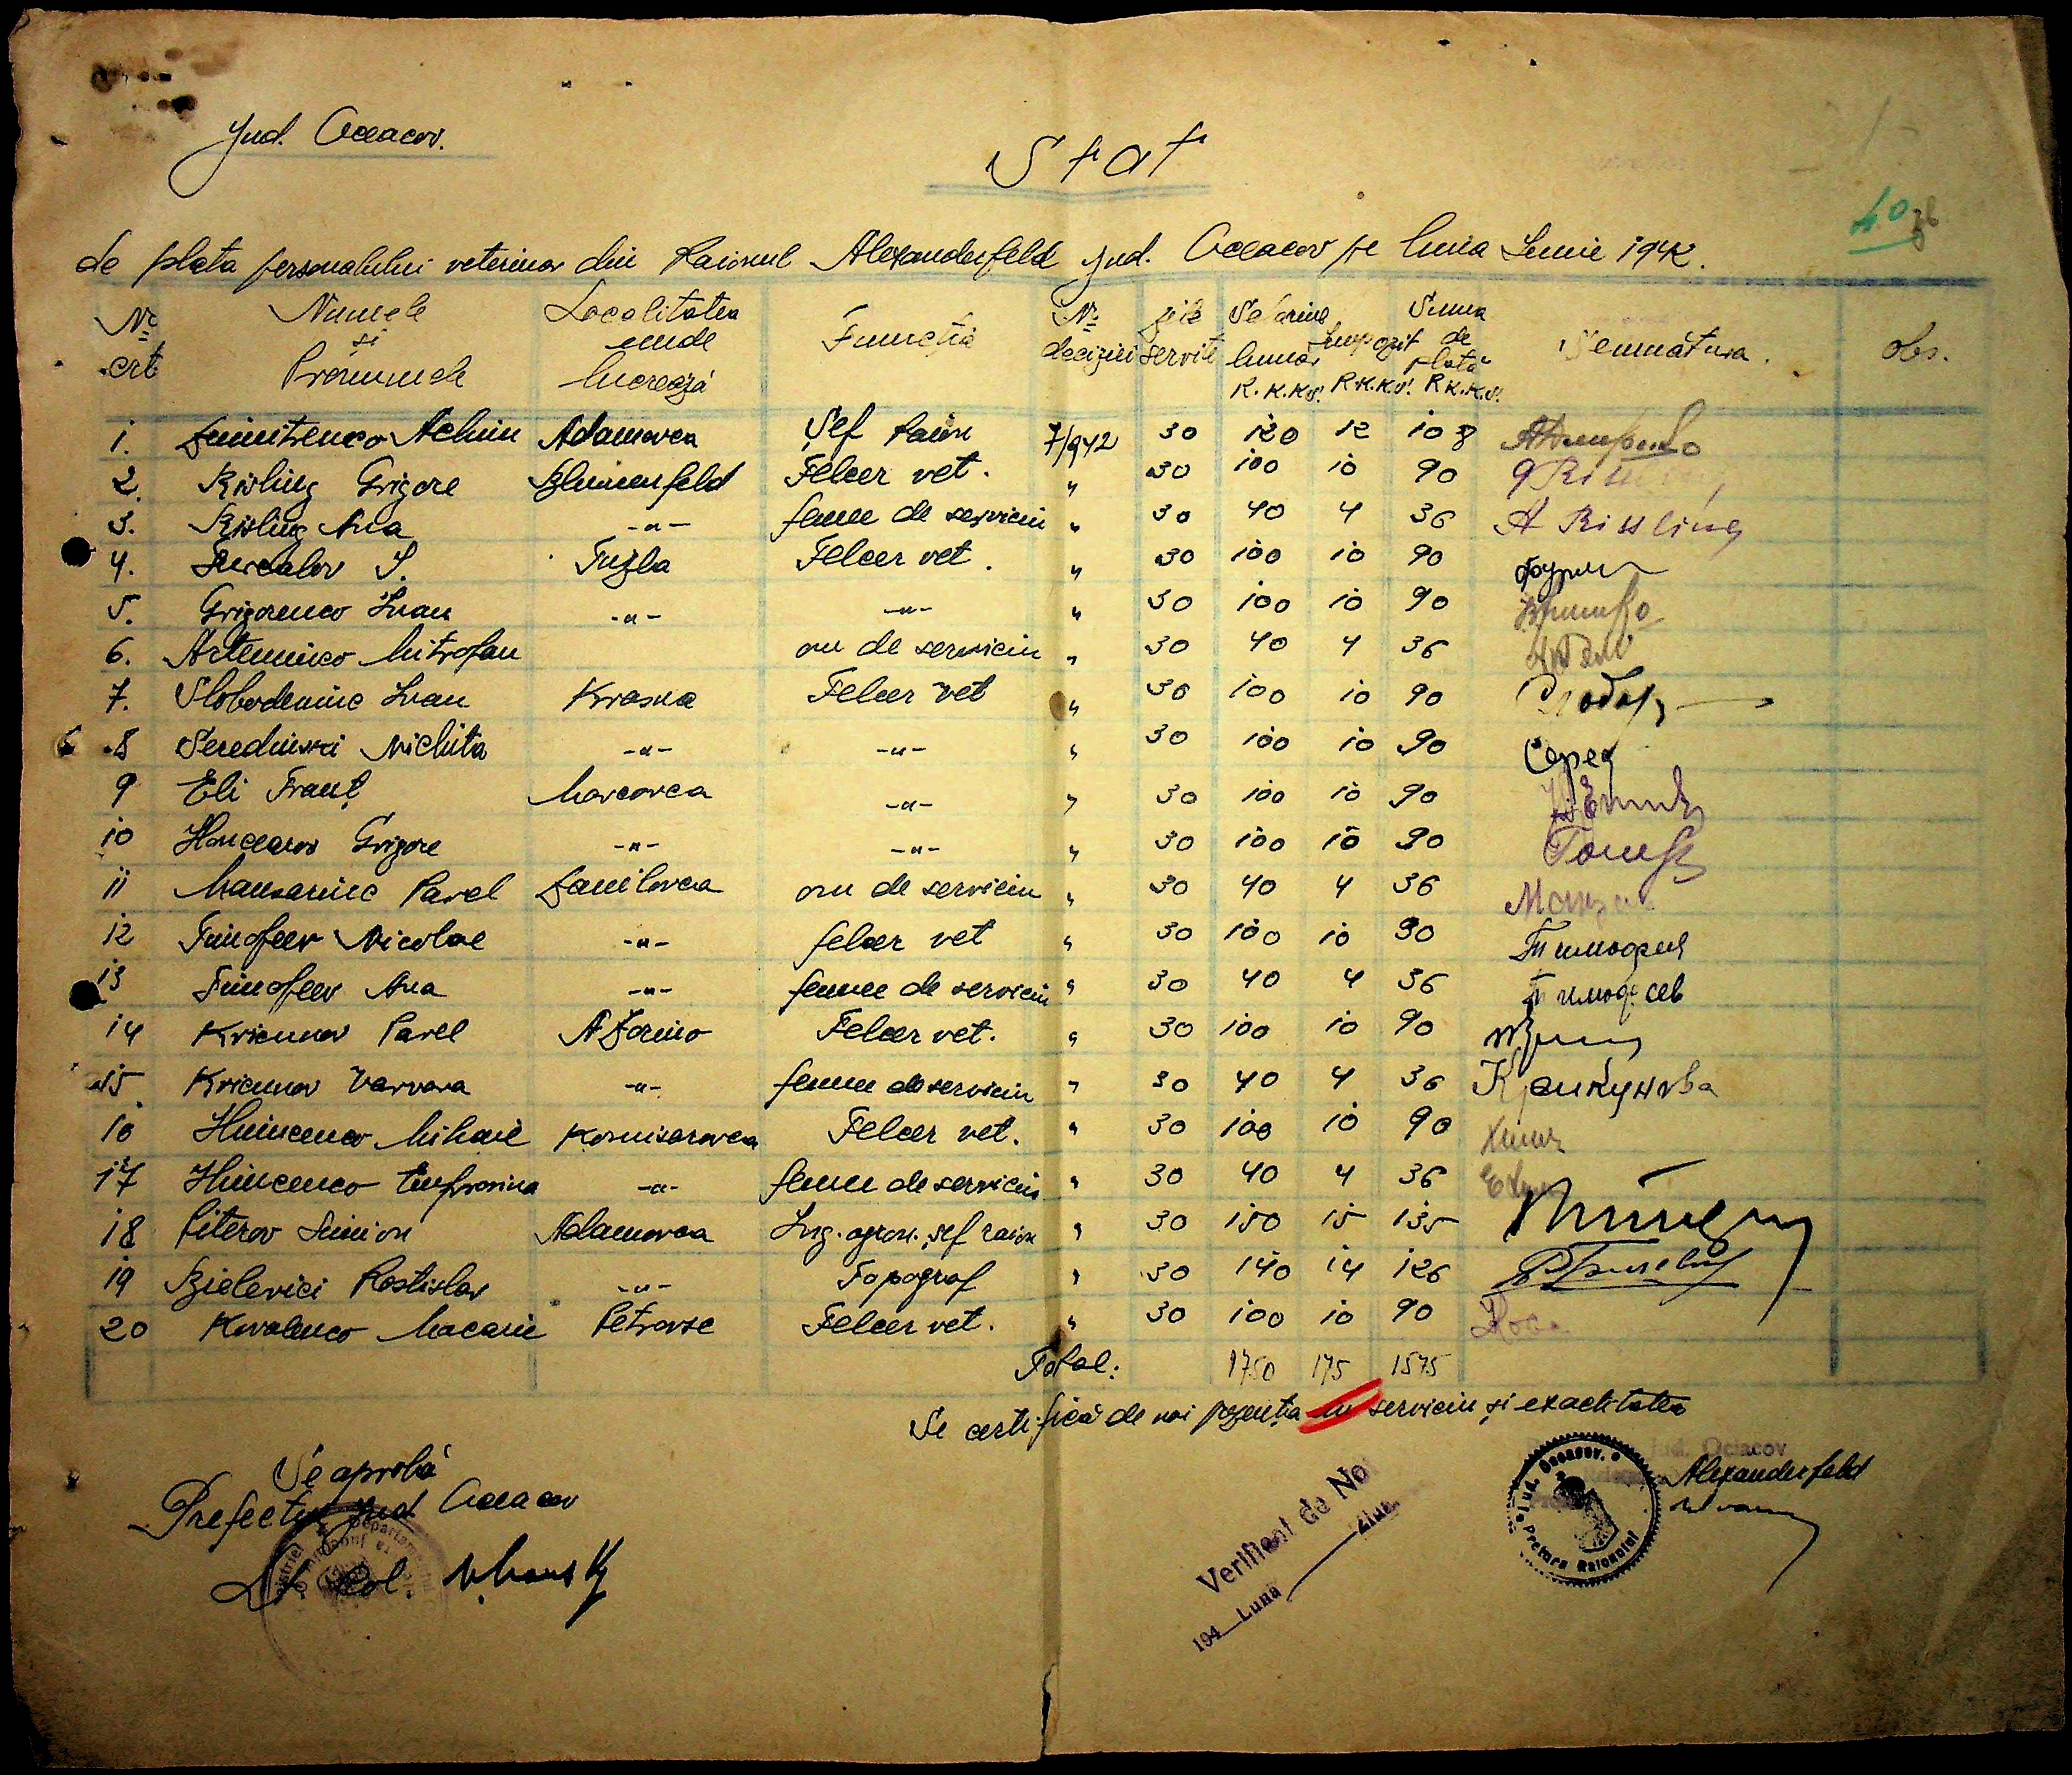 Jud. Oceacov.
Stat
40
de plata personalului veterinar din Raionul Alexanderfeld jud. Oceacov pe luna Iunie 1942.
Nr. crt. Numele și Pronumele Localitatea unde lucrează Funcția Nr. deciziei zile servite Salariul lunar R.K.K.S. Impozit R.K.K.S. Suma de plată R.K.K.S. Semnătura. obs.
1. Dumitrenco Achim Adamovca Șef Raion 7/942 30 120 12 108
2. Kisling Grigore Blumenfeld Felcer vet. " 30 100 10 90
3. Kisling Ana -"- femee de serviciu " 30 40 4 36 A Kissling
4. Furcalov I. Tuzla Felcer vet. " 30 100 10 90
5. Grigorenco Ivan -"- -"- " 30 100 10 90
6. Artemenco Mitrofan om de serviciu " 30 40 4 36
7. Slobodeniuc Ivan Krasna Felcer vet " 30 100 10 90
8 Seredinski Nichita -"- -"- " 30 100 10 90 Серед
9 Eli Franț Marcovca -"- " 30 100 10 90
10 Honcearov Grigore -"- -"- " 30 100 10 90
11 Mansariuc Pavel Danilovca om de serviciu " 30 40 4 36
12 Timofeev Nicolae -"- felcer vet " 30 100 10 90 Тимофеев
13 Timofeev Ana -"- femee de serviciu " 30 40 4 36 Тимофеев
14 Kricunov Pavel A Dorino Felcer vet. " 30 100 10 90
15. Kricunov Varvara -"- femee de serviciu " 30 40 4 36 Крикунова
16 Himcenco Mihail Komisarovca Felcer vet. " 30 100 10 90
17 Himcenco Eufrosina -"- femee de serviciu " 30 40 4 36
18 Piterov Simion Adamovca Ing. agron. șef raion " 30 150 15 135
19 Bielevici Rostislav -"- Topograf " 30 140 14 126
20 Kovalenco Macarie Petrovsc Felcer vet. " 30 100 10 90
Total: 1750 175 1575
Se certifică de noi prezența în serviciu și exactitatea
Se aprobă
Prefectul jud Oceacov
Lt Col.
Verificat de Noi
194 Luna Ziua
Jud. Oceacov. Pretura Raionului
Jud. Ociacov
Alexanderfeld